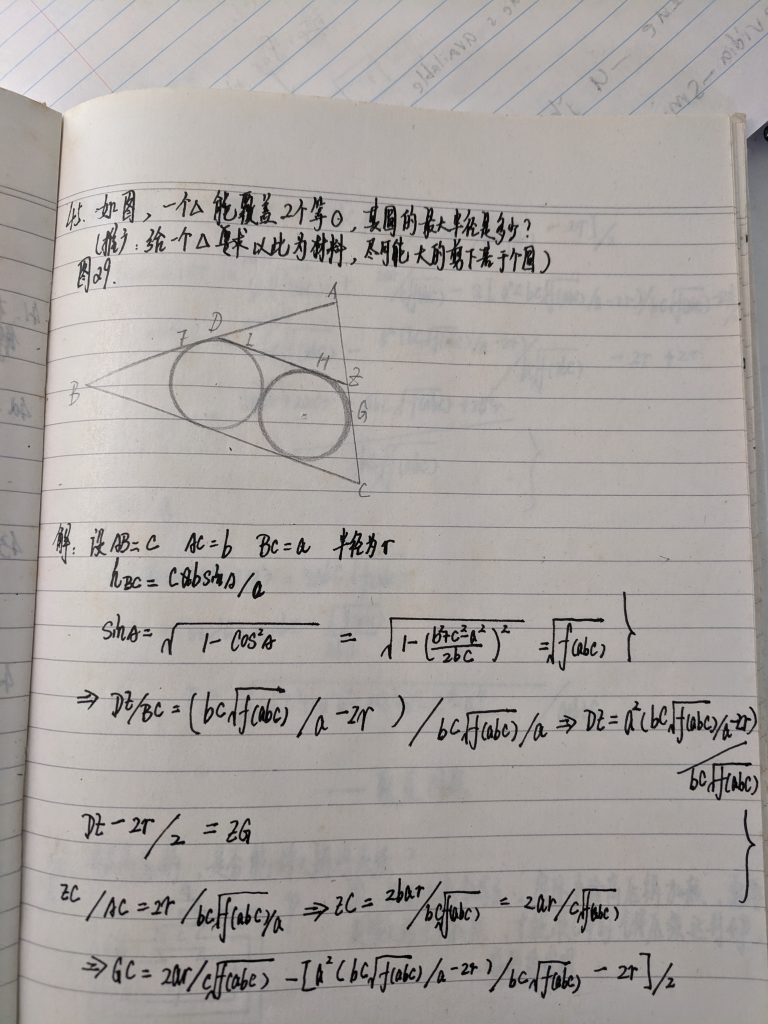 45. 如图，一个△能覆盖2个等⊙，其圆的最大半径是多少？
(推广：给一个△要求以此为材料，尽可能大的剪下若干个圆)
图29.
A
F D I
H
B
Z
G
C
解：设AB=c AC=b BC=a 半径为r
h_BC = sinA/a
sinA = √(1-cos²A) = √(1-((b²+c²-a²)/2bc)²) = √f(abc) }
⇒ DZ/BC = (bc√f(abc)/a-2r)/bc√f(abc)/a ⇒ DZ = a²(bc√f(abc)/a-2r)
/bc√f(abc)
DZ-2r/2 = ZG }
ZC/AC = 2r/bc√f(abc)/a ⇒ ZC = 2bar/bc√f(abc) = 2ar/c√f(abc)
⇒ GC = 2ar/c√f(abc) - [a²(bc√f(abc)/a-2r)/bc√f(abc) - 2r]/2